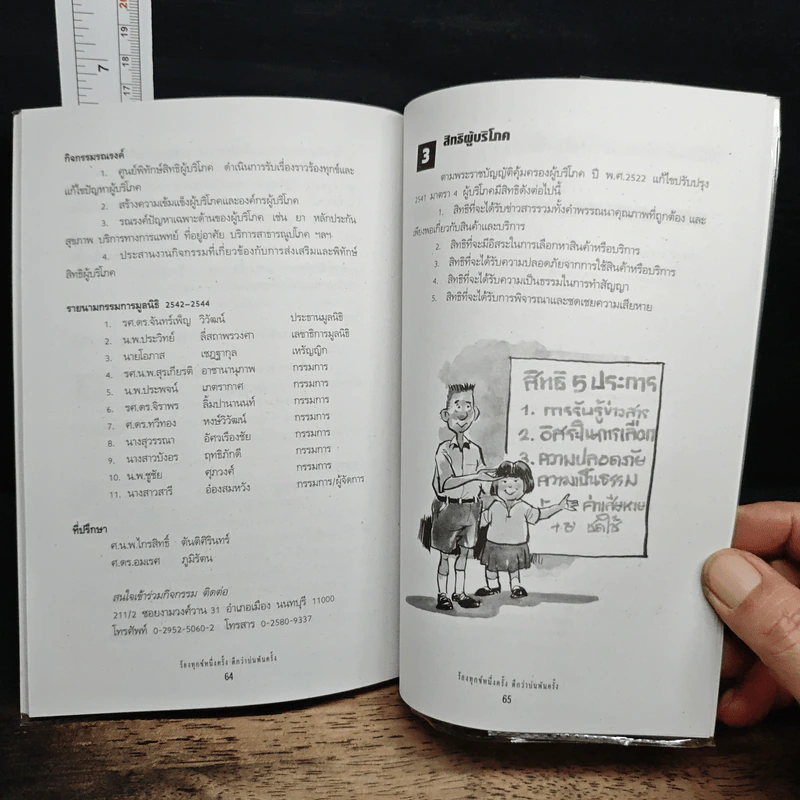 กิจกรรมรณรงค์
1. ศูนย์พิทักษ์สิทธิผู้บริโภค ดำเนินการรับเรื่องราวร้องทุกข์และ
แก้ไขปัญหาผู้บริโภค
2. สร้างความเข้มแข็งผู้บริโภคและองค์กรผู้บริโภค
3. รณรงค์ปัญหาเฉพาะด้านของผู้บริโภค เช่น ยา หลักประกัน
สุขภาพ บริการทางการแพทย์ ที่อยู่อาศัย บริการสาธารณูปโภค ฯลฯ
4. ประสานงานกิจกรรมที่เกี่ยวข้องกับการส่งเสริมและพิทักษ์
สิทธิผู้บริโภค
รายนามกรรมการมูลนิธิ 2542-2544
1. รศ.ดร.จันทร์เพ็ญ วิวัฒน์ ประธานมูลนิธิ
2. น.พ.ประวิทย์ ลี่สถาพรวงศา เลขาธิการมูลนิธิ
3. นายโอภาส เชฏฐากุล เหรัญญิก
4. รศ.น.พ.สุรเกียรติ อาชานานุภาพ กรรมการ
5. น.พ.ประพจน์ เภตรากาศ กรรมการ
6. รศ.ดร.จิราพร ลิ้มปานานนท์ กรรมการ
7. ศ.ดร.ทวีทอง หงษ์วิวัฒน์ กรรมการ
8. นางสุวรรณา อัศวเรืองชัย กรรมการ
9. นางสาวบังอร ฤทธิภักดี กรรมการ
10. น.พ.ชูชัย ศุภวงศ์ กรรมการ
11. นางสาวสารี อ๋องสมหวัง กรรมการ/ผู้จัดการ
ที่ปรึกษา
ศ.น.พ.ไกรสิทธิ์ ตันติศิรินทร์
ศ.ดร.อมเรศ ภูมิรัตน
สนใจเข้าร่วมกิจกรรม ติดต่อ
211/2 ซอยงามวงศ์วาน 31 อำเภอเมือง นนทบุรี 11000
โทรศัพท์ 0-2952-5060-2 โทรสาร 0-2580-9337
ร้องทุกข์หนึ่งครั้ง ดีกว่าบ่นพันครั้ง
64
3 สิทธิผู้บริโภค
ตามพระราชบัญญัติคุ้มครองผู้บริโภค ปี พ.ศ.2522 แก้ไขปรับปรุง
2541 มาตรา 4 ผู้บริโภคมีสิทธิดังต่อไปนี้
1. สิทธิที่จะได้รับข่าวสารรวมทั้งคำพรรณนาคุณภาพที่ถูกต้อง และ
เพียงพอเกี่ยวกับสินค้าและบริการ
2. สิทธิที่จะมีอิสระในการเลือกหาสินค้าหรือบริการ
3. สิทธิที่จะได้รับความปลอดภัยจากการใช้สินค้าหรือบริการ
4. สิทธิที่จะได้รับความเป็นธรรมในการทำสัญญา
5. สิทธิที่จะได้รับการพิจารณาและชดเชยความเสียหาย
สิทธิ 5 ประการ
1. การรับรู้ข่าวสาร
2. อิสระในการเลือก
3. ความปลอดภัย
ความเป็นธรรม
ค่าเสียหาย
ชดใช้
ร้องทุกข์หนึ่งครั้ง ดีกว่าบ่นพันครั้ง
65
7
20
19
18
17